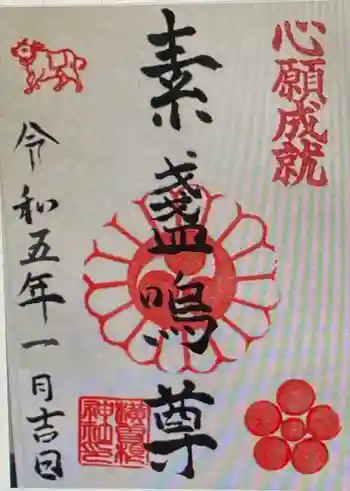 心願成就
素盞鳴尊
令和五年一月吉日